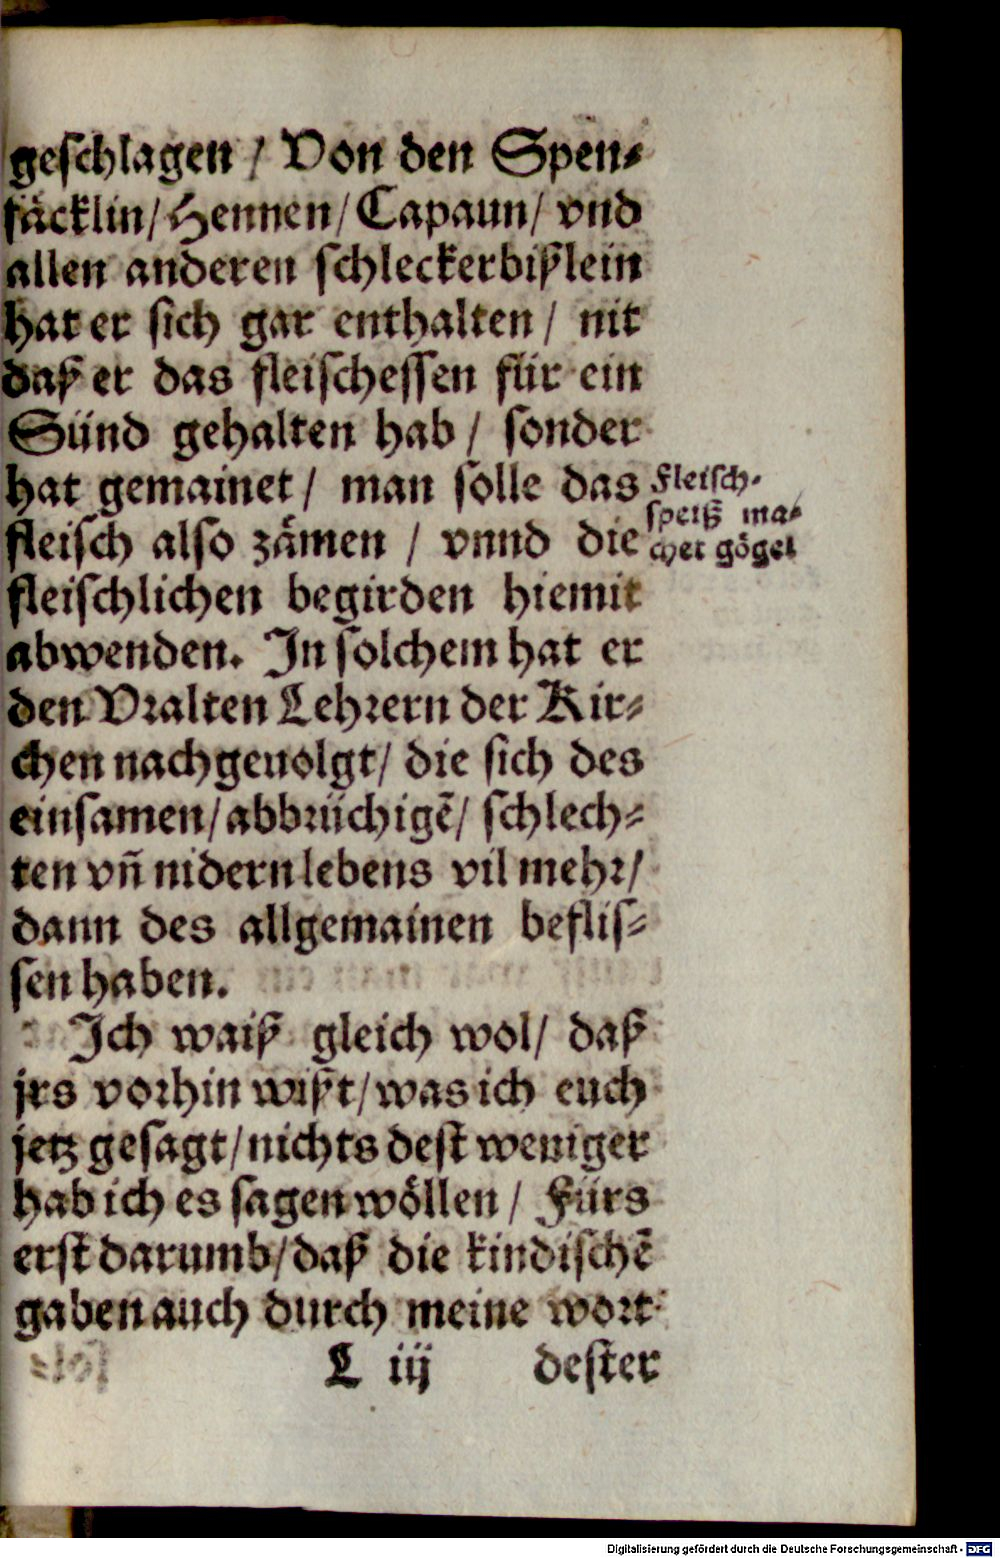 geschlagen / Von den Spen-
fäcklin / Hennen / Capaun / vnd
allen anderen schleckerbißlein
hat er sich gar enthalten / nit
daß er das fleischessen für ein
Sünd gehalten hab / sonder
hat gemainet / man solle das
fleisch also zämen / vnnd die
fleischlichen begirden hiemit
abwenden. In solchem hat er
den Vralten Lehrern der Kir-
chen nachgeuolgt / die sich des
einsamen / abbrüchigē / schlech-
ten vñ nidern lebens vil mehr /
dann des allgemainen beflis-
sen haben.
Ich waiß gleich wol / daß
jrs vorhin wißt / was ich euch
jetz gesagt / nichts dest weniger
hab ich es sagen wöllen / Fürs
erst darumb / daß die kindischē
gaben auch durch meine wort
L iij dester
Fleisch-
speiß ma-
chet gögel
Digitalisierung gefördert durch die Deutsche Forschungsgemeinschaft - DFG